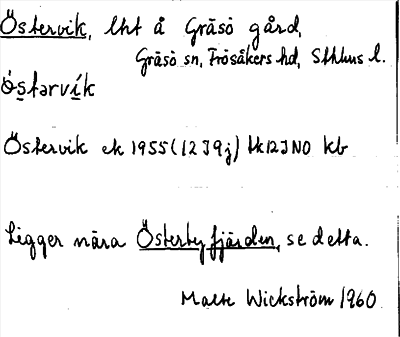 Östervik, lht å Gräsö gård,
Gräsö sn, Frösåkers hd, Sthlms l.
Östərvik
Östervik ek 1955 (12 I 9j) tk 12 I NO kb
Ligger nära Österbyfjärden, se detta.
Malte Wickström 1960